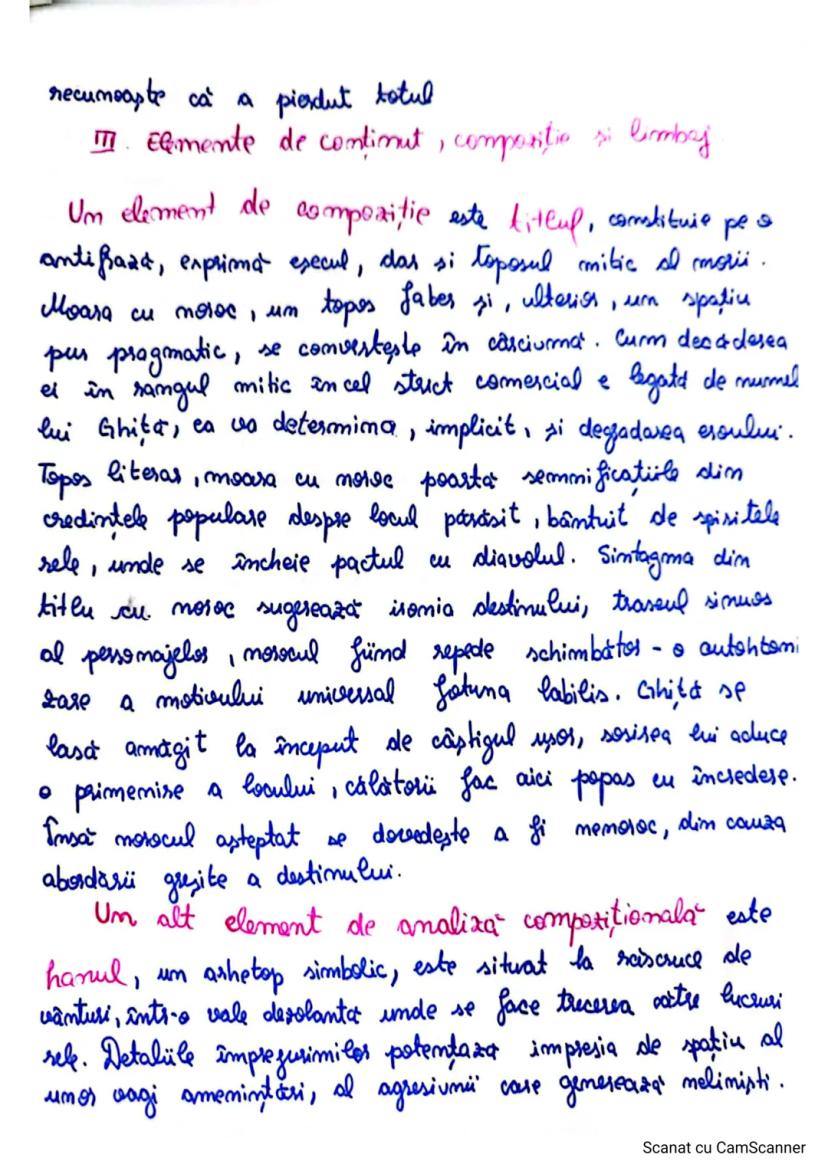 recunoaște că a pierdut totul
III. Elemente de conținut, compoziție si limbaj
Un element de compoziție este titlul, constituie pe o
antifrază, exprimă eșecul, dar si toposul mitic al morii.
Moara cu noroc, un topos faber și, ulterior, un spațiu
pur pragmatic, se convertește în cârciumă. Cum decăderea
ei în rangul mitic în cel strict comercial e legată de numel
lui Ghiță, ea va determina, implicit, și degradarea eroului.
Topos literar, moara cu noroc poartă semnificațiile din
credințele populare despre locul părăsit, bântuit de spiritele
rele, unde se încheie pactul cu diavolul. Sintagma din
titlu cu noroc sugerează ironia destinului, traseul sinuos
al personajelor, norocul fiind repede schimbător - o autohtoni
zare a motivului universal fotuna labilis. Ghiță se
lasă amăgit la început de câștigul ușor, sosirea lui aduce
o primenire a locului, călătorii fac aici popas cu încredere.
Însă norocul așteptat se dovedește a fi nenoroc, din cauza
abordării greșite a destinului.
Un alt element de analiză compozițională este
hanul, un arhetop simbolic, este situat la răscruce de
vânturi, într-o vale dezolantă unde se face trecerea către lucruri
rele. Detaliile împrejurimilor potențază impresia de spațiu al
unor vagi amenințări, al agresiunii care generează neliniști.
Scanat cu CamScanner